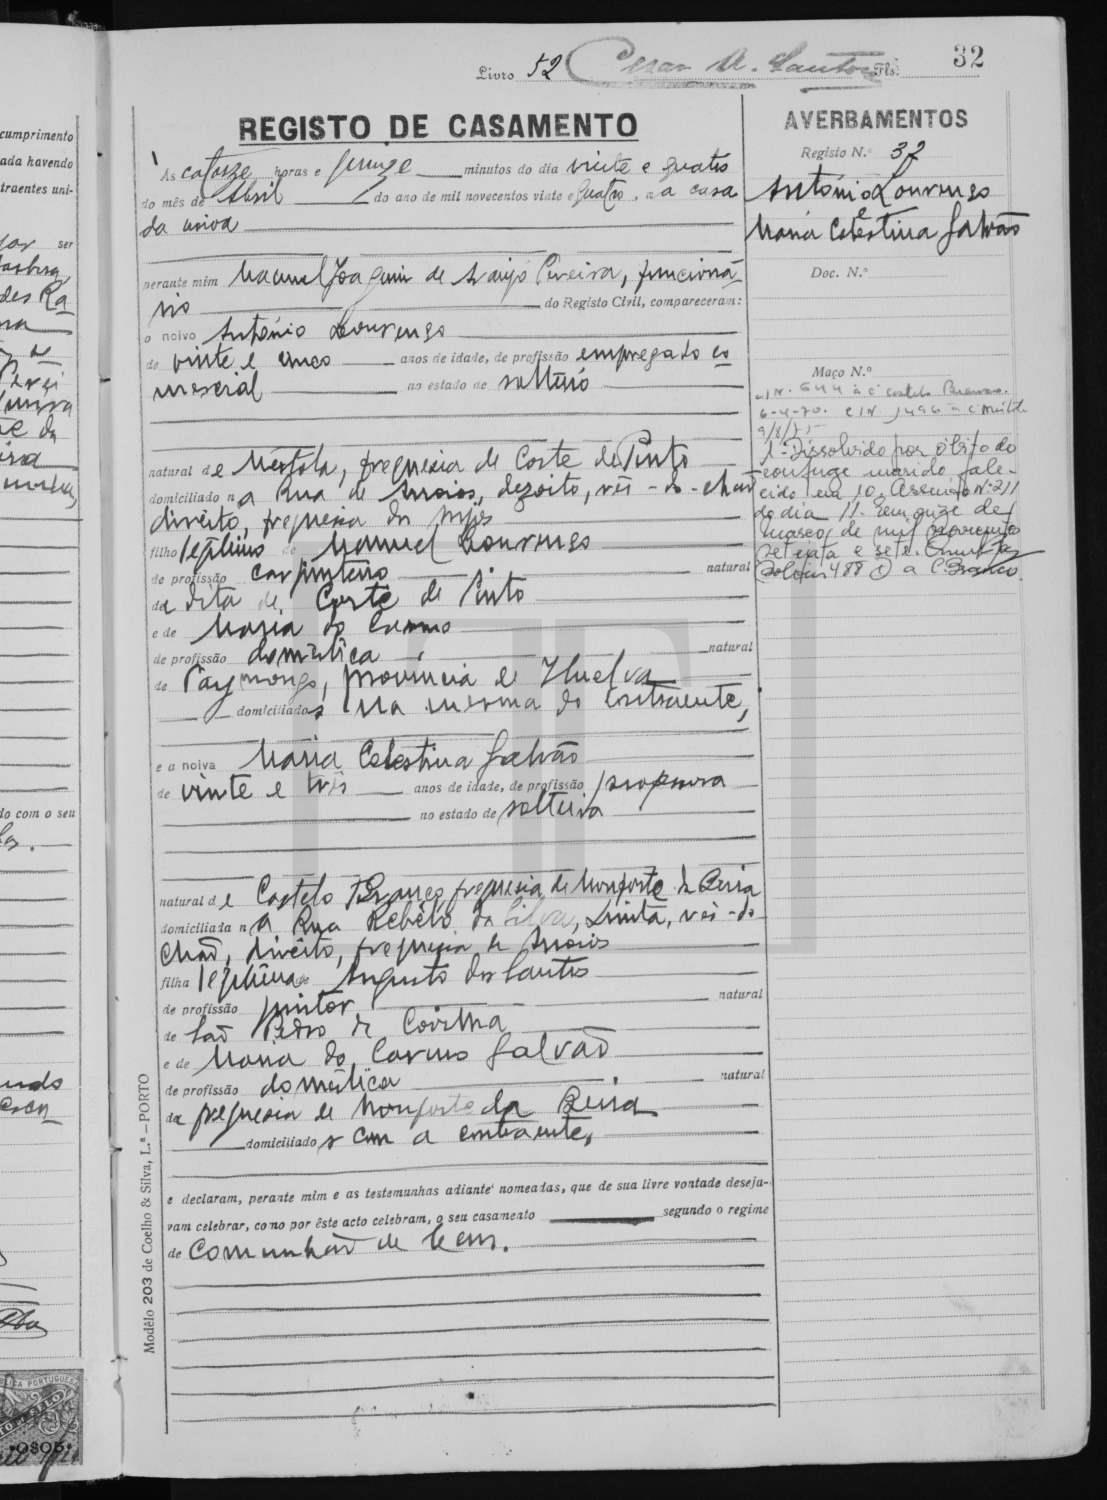 Livro 52 Cesar A. Santos Fls. 32
REGISTO DE CASAMENTO
Às catorze horas e quinze minutos do dia vinte e quatro
do mês de Abril do ano de mil novecentos vinte e quatro, na casa
da noiva
perante mim Manuel Joaquim de Araujo Pereira, funcioná-
rio do Registo Civil, compareceram:
o noivo António Lourenço
de vinte e cinco anos de idade, de profissão empregado co
mercial no estado de solteiro
natural de Mertola, freguesia de Corte do Pinto
domiciliado na Rua de Arroios, dezoito, rés-do-chão
direito, freguesia dos Anjos
filho legitimo de Manuel Lourenço
de profissão carpinteiro natural
da dita de Corte do Pinto
e de Maria do Carmo
de profissão doméstica natural
de Paymongo, provincia de Huelva
domiciliados na mesma do contraente,
e a noiva Maria Celestina Galvão
de vinte e três anos de idade, de profissão professora
no estado de solteira
natural de Castelo Branco, freguesia de Monforte da Beira
domiciliada na Rua Rebêlo da Silva, trinta, rés-do
chão, direito, freguesia de Arroios
filha legitima de Augusto dos Santos
de profissão pintor natural
de São Pedro da Covilhã
e de Maria do Carmo Galvão
de profissão doméstica natural
da freguesia de Monforte da Beira
domiciliados com a contraente,
e declaram, perante mim e as testemunhas adiante nomeadas, que de sua livre vontade deseja-
vam celebrar, como por êste acto celebram, o seu casamento segundo o regime
de Comunhão de bens.
Modêlo 203 de Coelho & Silva, L.ª—PORTO
AVERBAMENTOS
Registo N.º 37
António Lourenço
e
Maria Celestina Galvão
Doc. N.º
Maço N.º
N. 644 à C Castelo Branco.
6-4-70.
9/8/75
1-Dissolvido por óbito do
conjuge marido fale-
cido em 10. Assento Nº 211
do dia 11. Em onze de
Março de mil novecentos
setenta e sete.
Boletim 488 C. Branco.
cumprimento
ada havendo
traentes uni-
ser
do com o seu